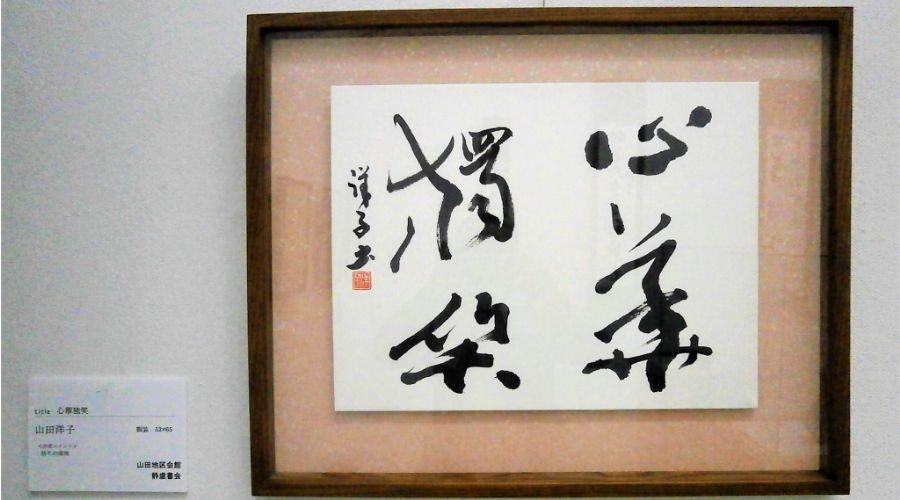 心華
獨笑
洋子書
title 心華独笑
山田洋子 額装 53×65
山田地区会館
静慮書会